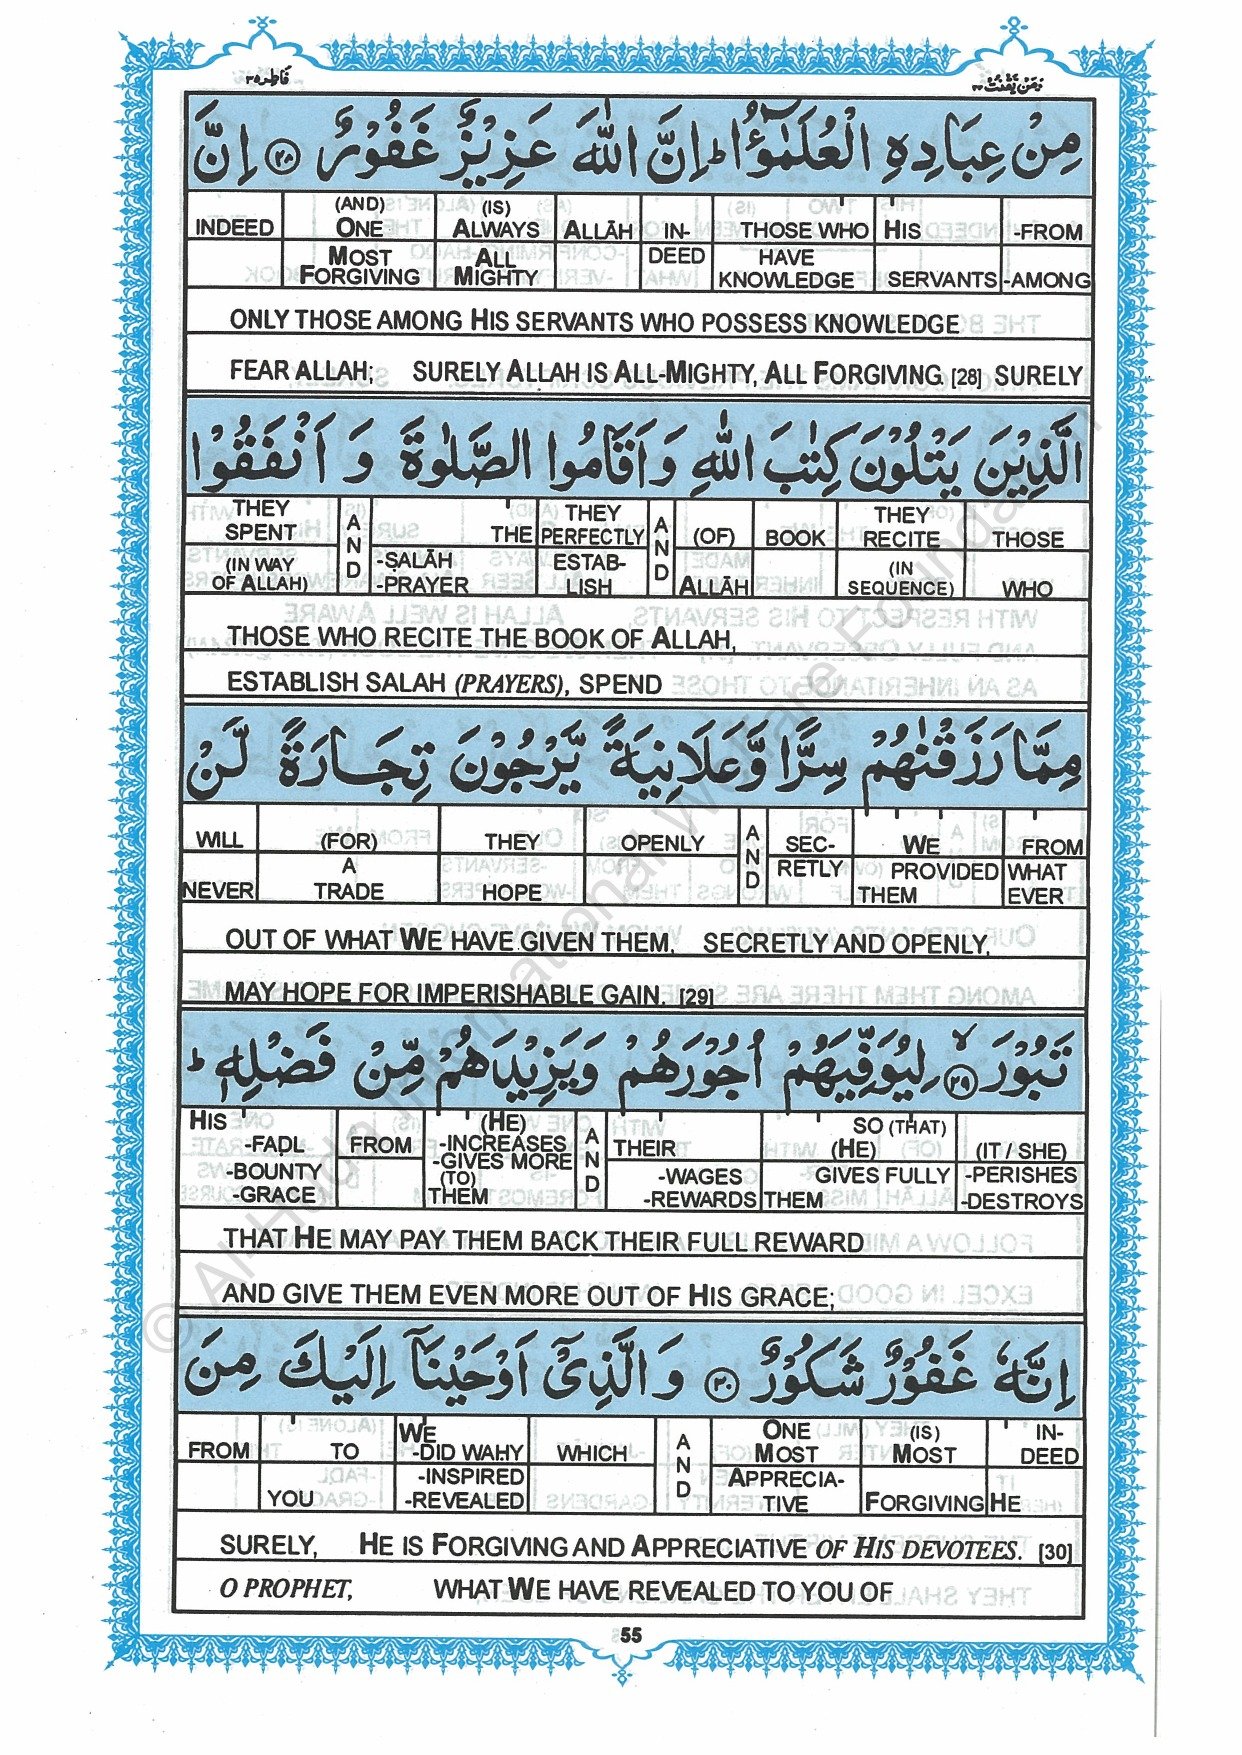 فاطر ٣٥
ومن يقنت ٢٢
مِنْ عِبَادِهِ الْعُلَمٰٓؤُا ؕ اِنَّ اللّٰهَ عَزِيْزٌ غَفُوْرٌ ﴿۲۸﴾ اِنَّ
INDEED (AND) ONE (IS) ALWAYS ALLĀH IN- THOSE WHO HIS -FROM
MOST FORGIVING ALL MIGHTY DEED HAVE KNOWLEDGE SERVANTS -AMONG
ONLY THOSE AMONG HIS SERVANTS WHO POSSESS KNOWLEDGE
FEAR ALLAH; SURELY ALLAH IS ALL-MIGHTY, ALL FORGIVING. [28] SURELY
الَّذِيْنَ يَتْلُوْنَ كِتٰبَ اللّٰهِ وَ اَقَامُوا الصَّلٰوةَ وَ اَنْفَقُوْا
THEY SPENT AND THE THEY PERFECTLY AND (OF) BOOK THEY RECITE THOSE
(IN WAY OF ALLAH) -ṢALĀH -PRAYER ESTAB- LISH ALLĀH (IN SEQUENCE) WHO
THOSE WHO RECITE THE BOOK OF ALLAH,
ESTABLISH SALAH (PRAYERS), SPEND
مِمَّا رَزَقْنٰهُمْ سِرًّا وَّعَلَانِيَةً يَّرْجُوْنَ تِجَارَةً لَّنْ
WILL (FOR) THEY OPENLY AND SEC- WE FROM
NEVER A TRADE HOPE RETLY PROVIDED THEM WHAT EVER
OUT OF WHAT WE HAVE GIVEN THEM, SECRETLY AND OPENLY,
MAY HOPE FOR IMPERISHABLE GAIN. [29]
تَبُوْرَ ۙ ﴿۲۹﴾ لِيُوَفِّيَهُمْ اُجُوْرَهُمْ وَيَزِيْدَهُمْ مِّنْ فَضْلِهٖ ؕ
HIS -FAḌL FROM (HE) -INCREASES AND THEIR SO (THAT) (HE) (IT / SHE)
-BOUNTY -GRACE -GIVES MORE (TO) THEM -WAGES -REWARDS GIVES FULLY THEM -PERISHES -DESTROYS
THAT HE MAY PAY THEM BACK THEIR FULL REWARD
AND GIVE THEM EVEN MORE OUT OF HIS GRACE;
اِنَّهٗ غَفُوْرٌ شَكُوْرٌ ﴿۳۰﴾ وَ الَّذِيْٓ اَوْحَيْنَآ اِلَيْكَ مِنَ
FROM TO WE -DID WAḤY WHICH AND ONE MOST (IS) MOST IN- DEED
YOU -INSPIRED -REVEALED APPRECIA- TIVE FORGIVING HE
SURELY, HE IS FORGIVING AND APPRECIATIVE OF HIS DEVOTEES. [30]
O PROPHET, WHAT WE HAVE REVEALED TO YOU OF
55
© Al Huda International Welfare Foundation